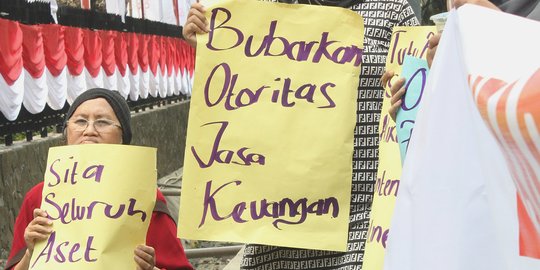 Bubarkan
Otoritas
Jasa
Keuangan
Sita
Seluruh
Aset